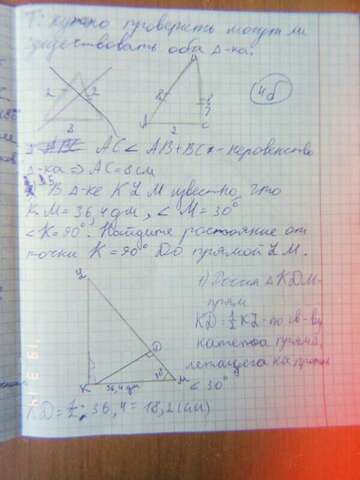 Т: нужно проверить могут ли
существовать оба Δ-ка.
2
2
3
8
?
A
2
C
4б
AC < AB + BC - неравенство
Δ-ка ⇒ AC = 8 см
В Δ-ке KLM известно, что
KM = 36,4 дм, ∠M = 30°
∠K = 90°. Найдите расстояние от
точки K = 90° до прямой LM.
L
1) Рассм Δ KDM-
прям
KD = 1/2 KL - по св-ву
катета прямо,
лежащего на против
∠30°
D
30
K
36,4 дм
M
KD = 1/2 · 36,4 = 18,2 (дм)